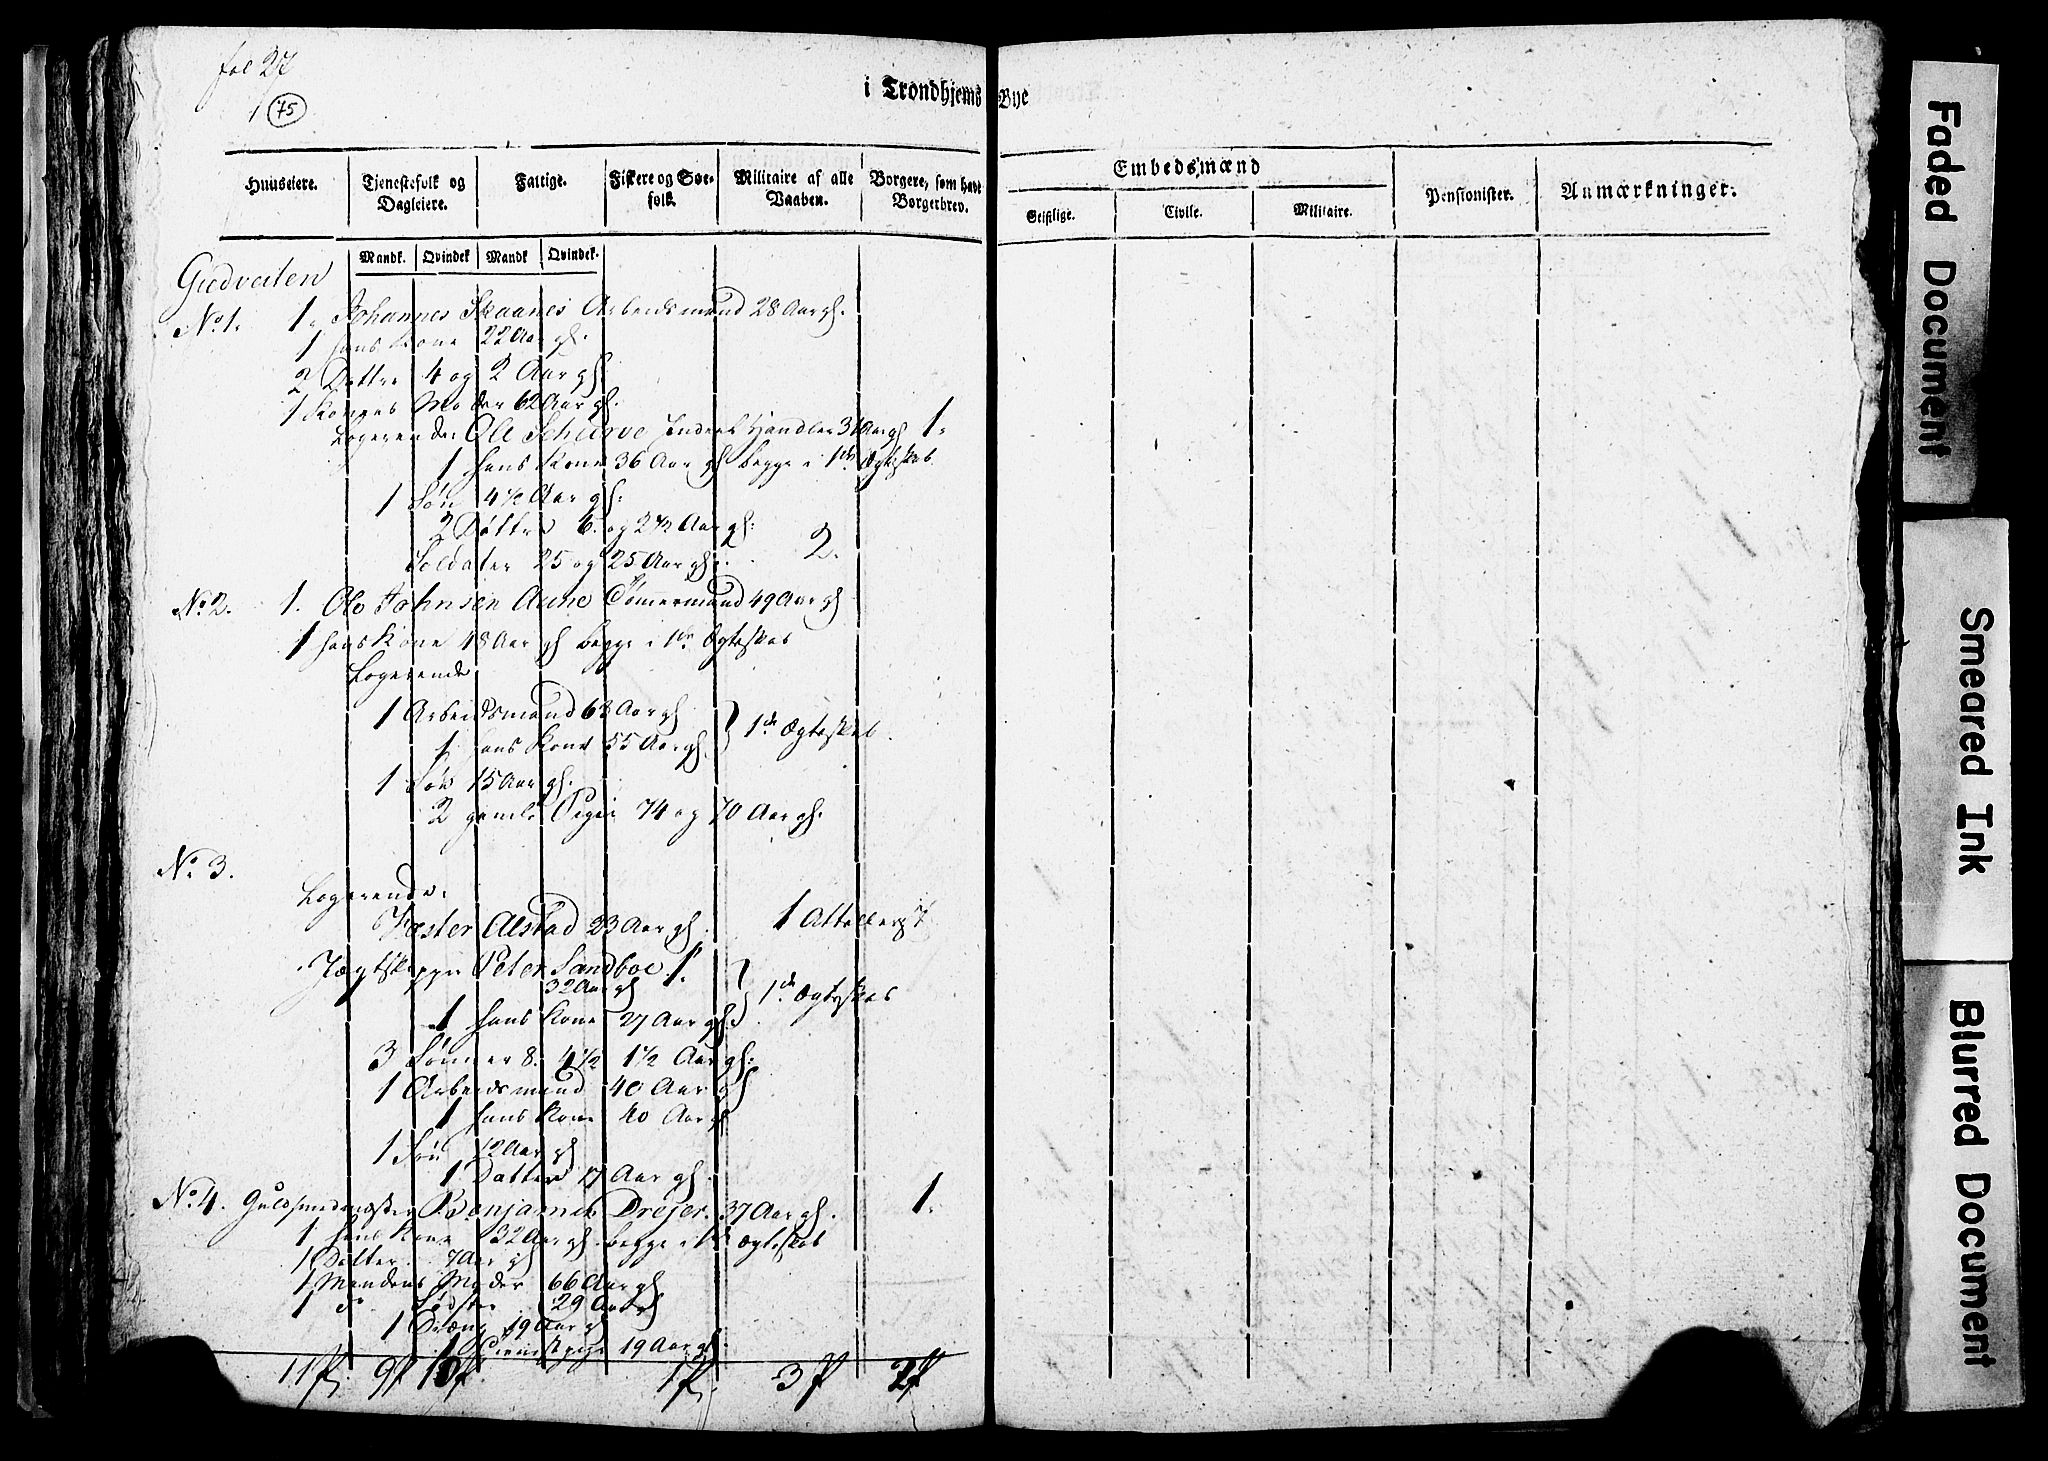 fol 27
75
i Trondhjems Bye
Huuseiere.
Tjenestefolk og Dagleiere.
Fattige.
Fiskere og Søefolk.
Militaire af alle Vaaben.
Borgere, som have Borgerbrev.
Embedsmænd
Geistlige.
Civile.
Militaire.
Pensionister.
Anmærkninger.
Mandk.
Qvindek
Mandk
Qvindek.
Gudveiten
No 1. 1. Johannes Skaanes Arbeidsmand 28 Aar gl.
1 hans Kone 22 Aar gl.
2 Døttre 4 og 2 Aar gl
1 Konens Moder 62 Aar gl.
Logerende: Ole Schurve Handler 31 Aar gl 1.
1 hans Kone 36 Aar gl begge i 1ste Ægteskab.
1 Søn 4 1/2 Aar gl:
2 Døttre 6. og 2 1/2 Aar gl:
Soldater 25 og 25 Aar gl. 2.
No 2. 1. Ole Johnsen Aune Tømermand 49 Aar gl
1 hans Kone 48 Aar gl begge i 1ste Ægteskab
Logerende
1 Arbeidsmand 68 Aar gl
1 hans Kone 55 Aar gl. } 1ste Ægteskab.
1 Søn 15 Aar gl.
2 gamle Piger 74 og 70 Aar gl.
No 3.
Logerende.
Alstad 23 Aar gl. 1
Jægtskipper Peter Sandboe 1.
32 Aar gl } 1ste Ægteskab
1 hans Kone 27 Aar gl.
3 Sønner 8. 4 1/2 1 1/2 Aar gl.
1 Arbeidsmand 40 Aar gl
1 hans Kone 40 Aar gl
1 Søn 12 Aar gl
1 Datter 17 Aar gl.
No 4. Guldsmedmester Benjamin Drejer. 37 Aar gl. 1.
1 hans Kone 32 Aar gl. begge i 1ste Ægteskab
1 Datter 7 Aar gl
1 Mandens Moder 66 Aar gl
1 Do Søster 29 Aar gl
1 Dreng 19 Aar gl
1 Tienistpige 19 Aar gl.
11 9 10 1 3 2
Faded Document
Smeared Ink
Blurred Document